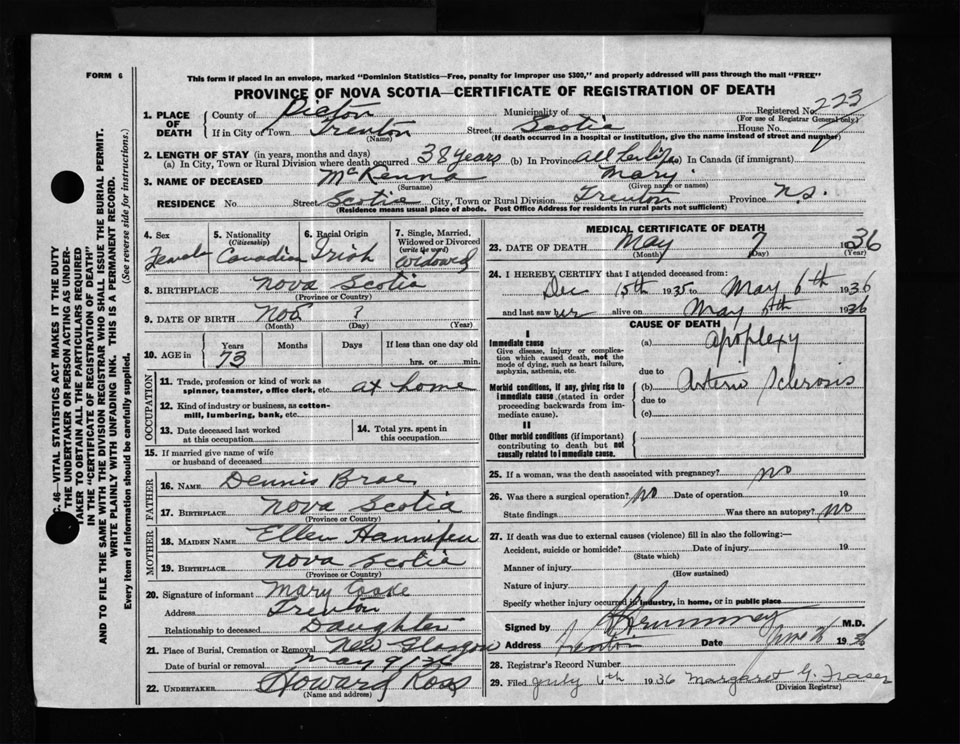 FORM 6
This form if placed in an envelope, marked "Dominion Statistics—Free, penalty for improper use $300," and properly addressed will pass through the mail "FREE"
PROVINCE OF NOVA SCOTIA—CERTIFICATE OF REGISTRATION OF DEATH
1. PLACE OF DEATH
County of Pictou Municipality of Registered No. 223
(For use of Registrar General only)
If in City or Town Trenton Street Scotia House No. 7
(Name) (If death occurred in a hospital or institution, give the name instead of street and number)
2. LENGTH OF STAY (in years, months and days)
(a) In City, Town or Rural Division where death occurred 38 years (b) In Province all her life (c) In Canada (if immigrant)
3. NAME OF DECEASED McKenna Mary
(Surname) (Given name or names)
RESIDENCE No Street Scotia City, Town or Rural Division Trenton Province N.S.
(Residence means usual place of abode. Post Office Address for residents in rural parts not sufficient)
4. Sex Female
5. Nationality (Citizenship) Canadian
6. Racial Origin Irish
7. Single, Married, Widowed or Divorced (write the word) Widowed
8. BIRTHPLACE Nova Scotia
(Province or Country)
9. DATE OF BIRTH Nov ?
(Month) (Day) (Year)
10. AGE in Years 73 Months Days If less than one day old
hrs. or min.
OCCUPATION
11. Trade, profession or kind of work as spinner, teamster, office clerk, etc. at home
12. Kind of industry or business, as cotton-mill, lumbering, bank, etc.
13. Date deceased last worked at this occupation
14. Total yrs. spent in this occupation
15. If married give name of wife or husband of deceased
FATHER
16. NAME Dennis Brae
17. BIRTHPLACE Nova Scotia
(Province or Country)
MOTHER
18. MAIDEN NAME Ellen Hannifen
19. BIRTHPLACE Nova Scotia
(Province or Country)
20. Signature of informant Mary Cooke
Address Trenton
Relationship to deceased Daughter
21. Place of Burial, Cremation or Removal New Glasgow
Date of burial or removal May 9/36
22. UNDERTAKER Howard Ross
(Name and address)
MEDICAL CERTIFICATE OF DEATH
23. DATE OF DEATH May 7 1936
(Month) (Day) (Year)
24. I HEREBY CERTIFY that I attended deceased from:
Dec 15th 1935 to May 6th 1936
and last saw her alive on May 1936
CAUSE OF DEATH
I
Immediate cause
Give disease, injury or complication which caused death, not the mode of dying, such as heart failure, asphyxia, asthenia, etc.
(a) Apoplexy
due to
Morbid conditions, if any, giving rise to immediate cause (stated in order proceeding backwards from immediate cause).
(b) Arterio Sclerosis
due to
(c)
II
Other morbid conditions (if important) contributing to death but not causally related to immediate cause.
25. If a woman, was the death associated with pregnancy? no
26. Was there a surgical operation? no Date of operation 19
State findings Was there an autopsy? no
27. If death was due to external causes (violence) fill in also the following:—
Accident, suicide or homicide? Date of injury 19
(State which)
Manner of injury
(How sustained)
Nature of injury
Specify whether injury occurred in industry, in home, or in public place
Signed by M.D.
Address Trenton Date June 1936
28. Registrar's Record Number
29. Filed July 6th 1936 Margaret G. Fraser
(Division Registrar)
C. 46—VITAL STATISTICS ACT MAKES IT THE DUTY
THE UNDERTAKER OR PERSON ACTING AS UNDER-
TAKER TO OBTAIN ALL THE PARTICULARS REQUIRED
IN THE "CERTIFICATE OF REGISTRATION OF DEATH"
AND TO FILE THE SAME WITH THE DIVISION REGISTRAR WHO SHALL ISSUE THE BURIAL PERMIT.
WRITE PLAINLY WITH UNFADING INK. THIS IS A PERMANENT RECORD.
Every item of information should be carefully supplied. (See reverse side for instructions.)